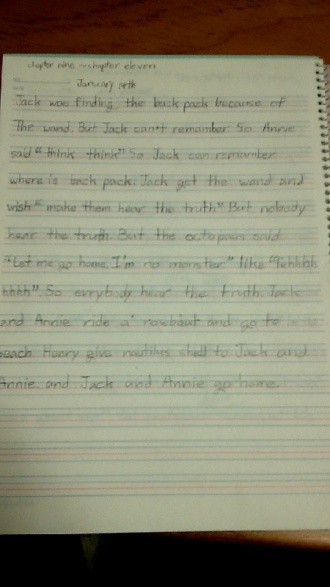 chapter nine ~ chapter eleven
January 14th
Jack was finding the back pack because of
The wand. But Jack can't remember. So Annie
said "think think" So Jack can remamber
where is back pack. Jack get the wand and
wish "make them hear the truth" But nobody
hear the truth. But the octopaus said
"Let me go home. I'm no monster." like
hhhh". So evrybody hear the truth. Jack
and Annie ride a rowboat and go to
beach. Henry give nautilus shell to Jack and
Annie. and Jack and Annie go home.